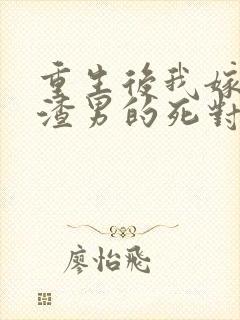 重生後我嫁
渣男的死對
廖怡飛